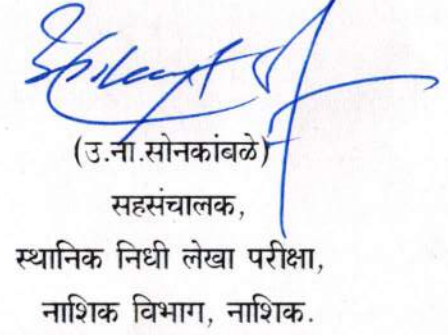 (उ.ना.सोनकांबळे)
सहसंचालक,
स्थानिक निधी लेखा परीक्षा,
नाशिक विभाग, नाशिक.